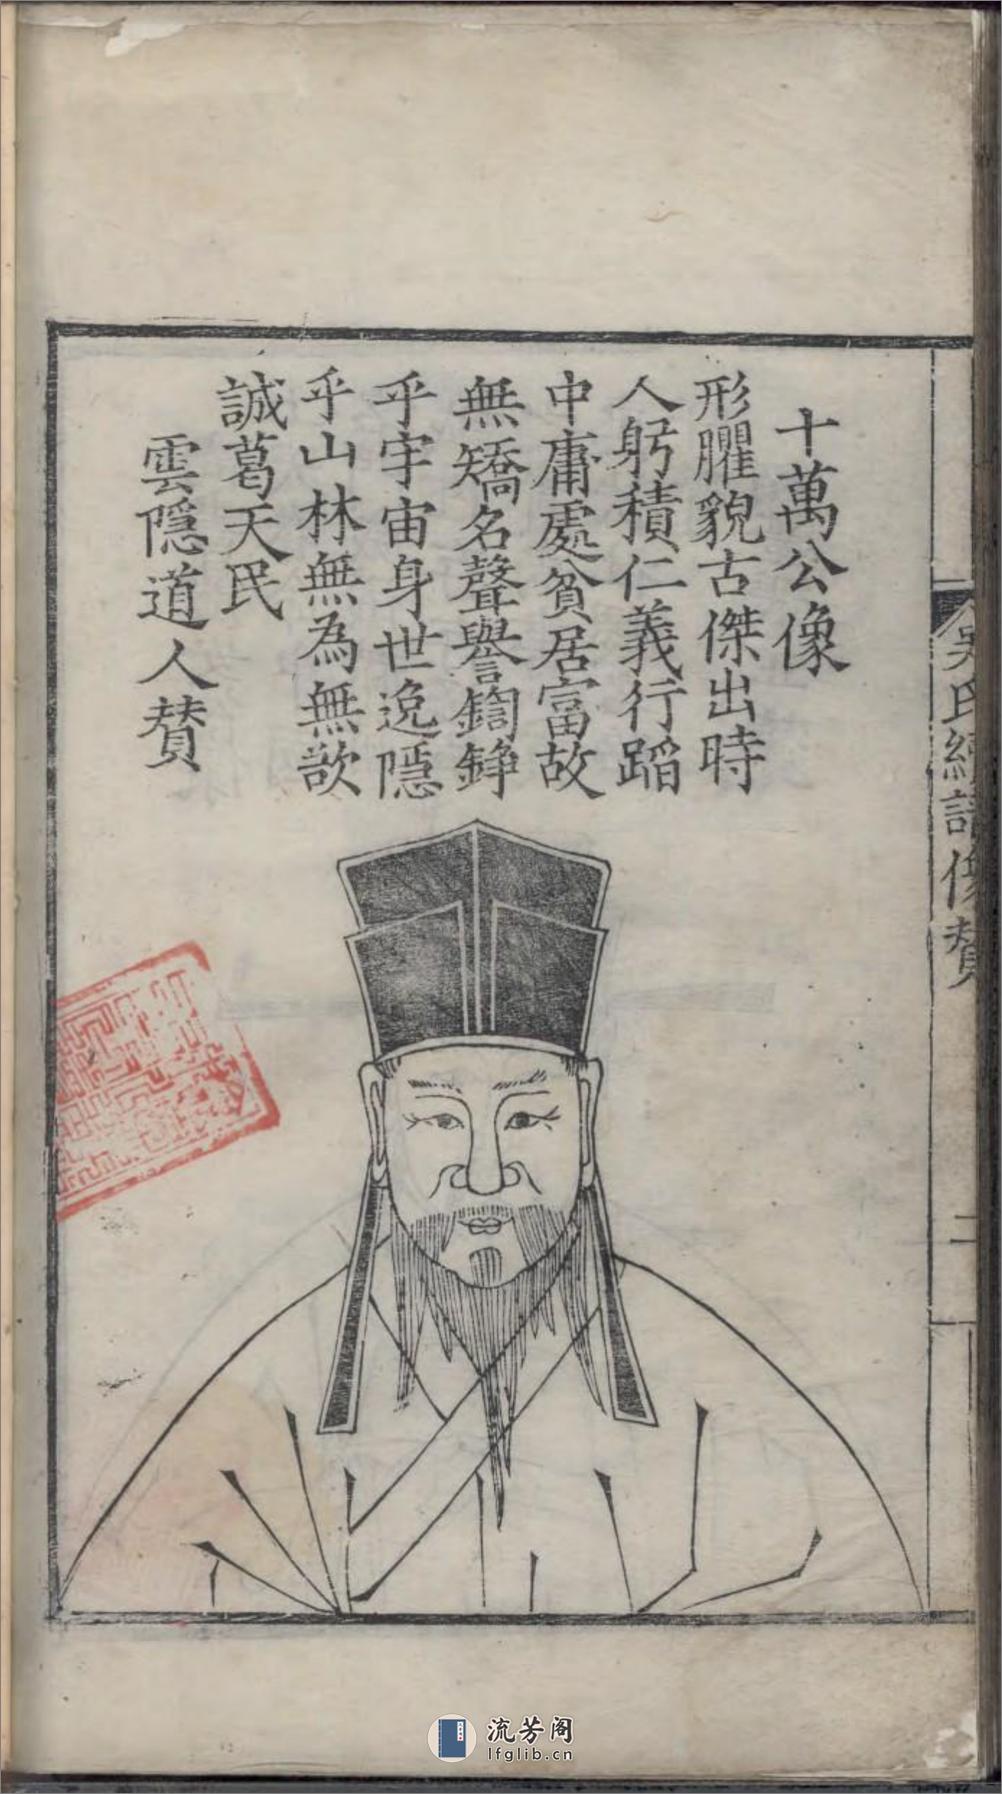 十萬公像
形臞貌古傑出時
人躬積仁義行蹈
中庸處貧居富故
無矯名聲譽鍧錚
乎宇宙身世逸隱
乎山林無為無欲
誠葛天民
雲隱道人贊
吳氏續譜像贊
二
流芳阁
lfglib.cn